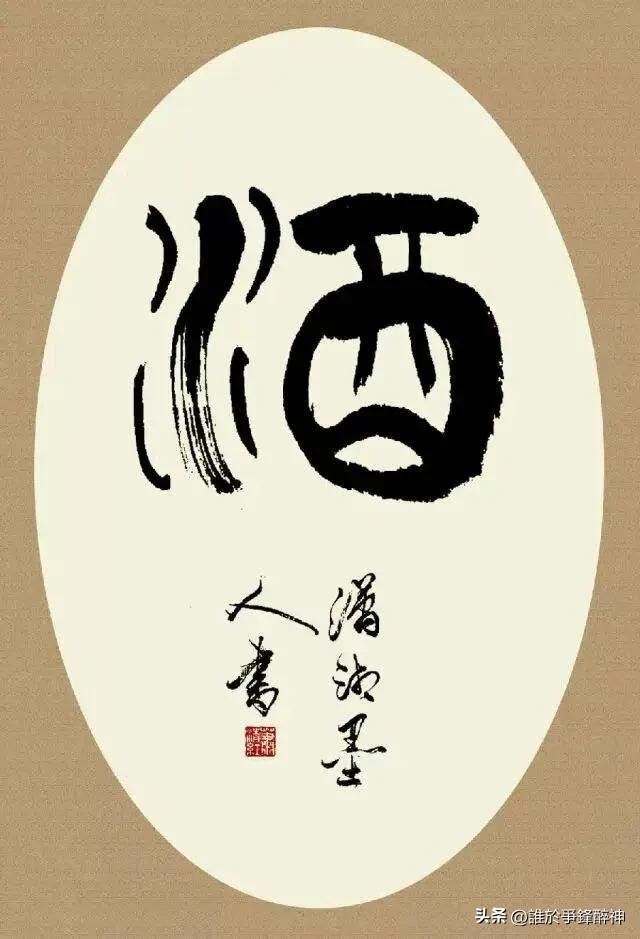 酒
潇湘墨
人書
头条 @誰於爭鋒醉神